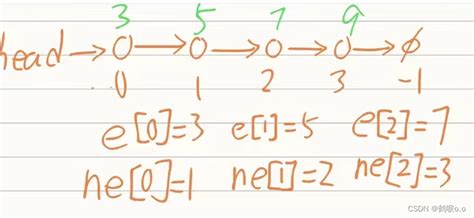 3 5 7 9
head → O → O → O → O → ϕ
0 1 2 3 -1
e[0]=3 e[1]=5 e[2]=7
ne[0]=1 ne[1]=2 ne[2]=3
CSDN @鹤啾o.o